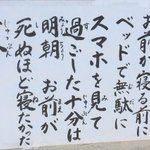 お前が寝る前に
ベッドで無駄に
スマホを見て
過ごした十分は
明朝 お前が
死ぬほど寝たかった